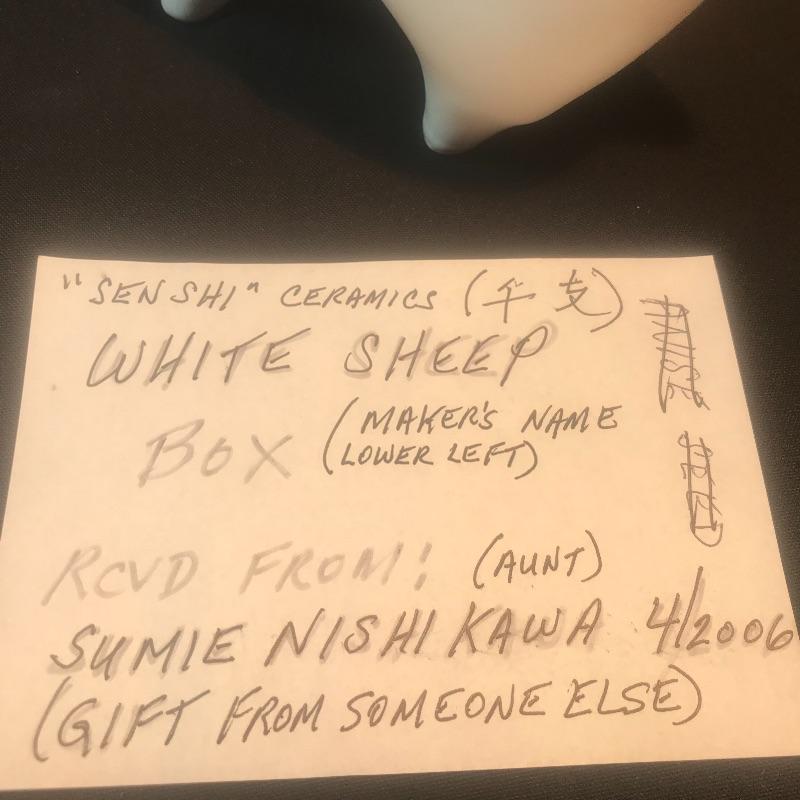 "SENSHI" CERAMICS (干支)
WHITE SHEEP
BOX (MAKER'S NAME
LOWER LEFT)
RCVD FROM: (AUNT)
SUMIE NISHIKAWA 4/2006
(GIFT FROM SOMEONE ELSE)